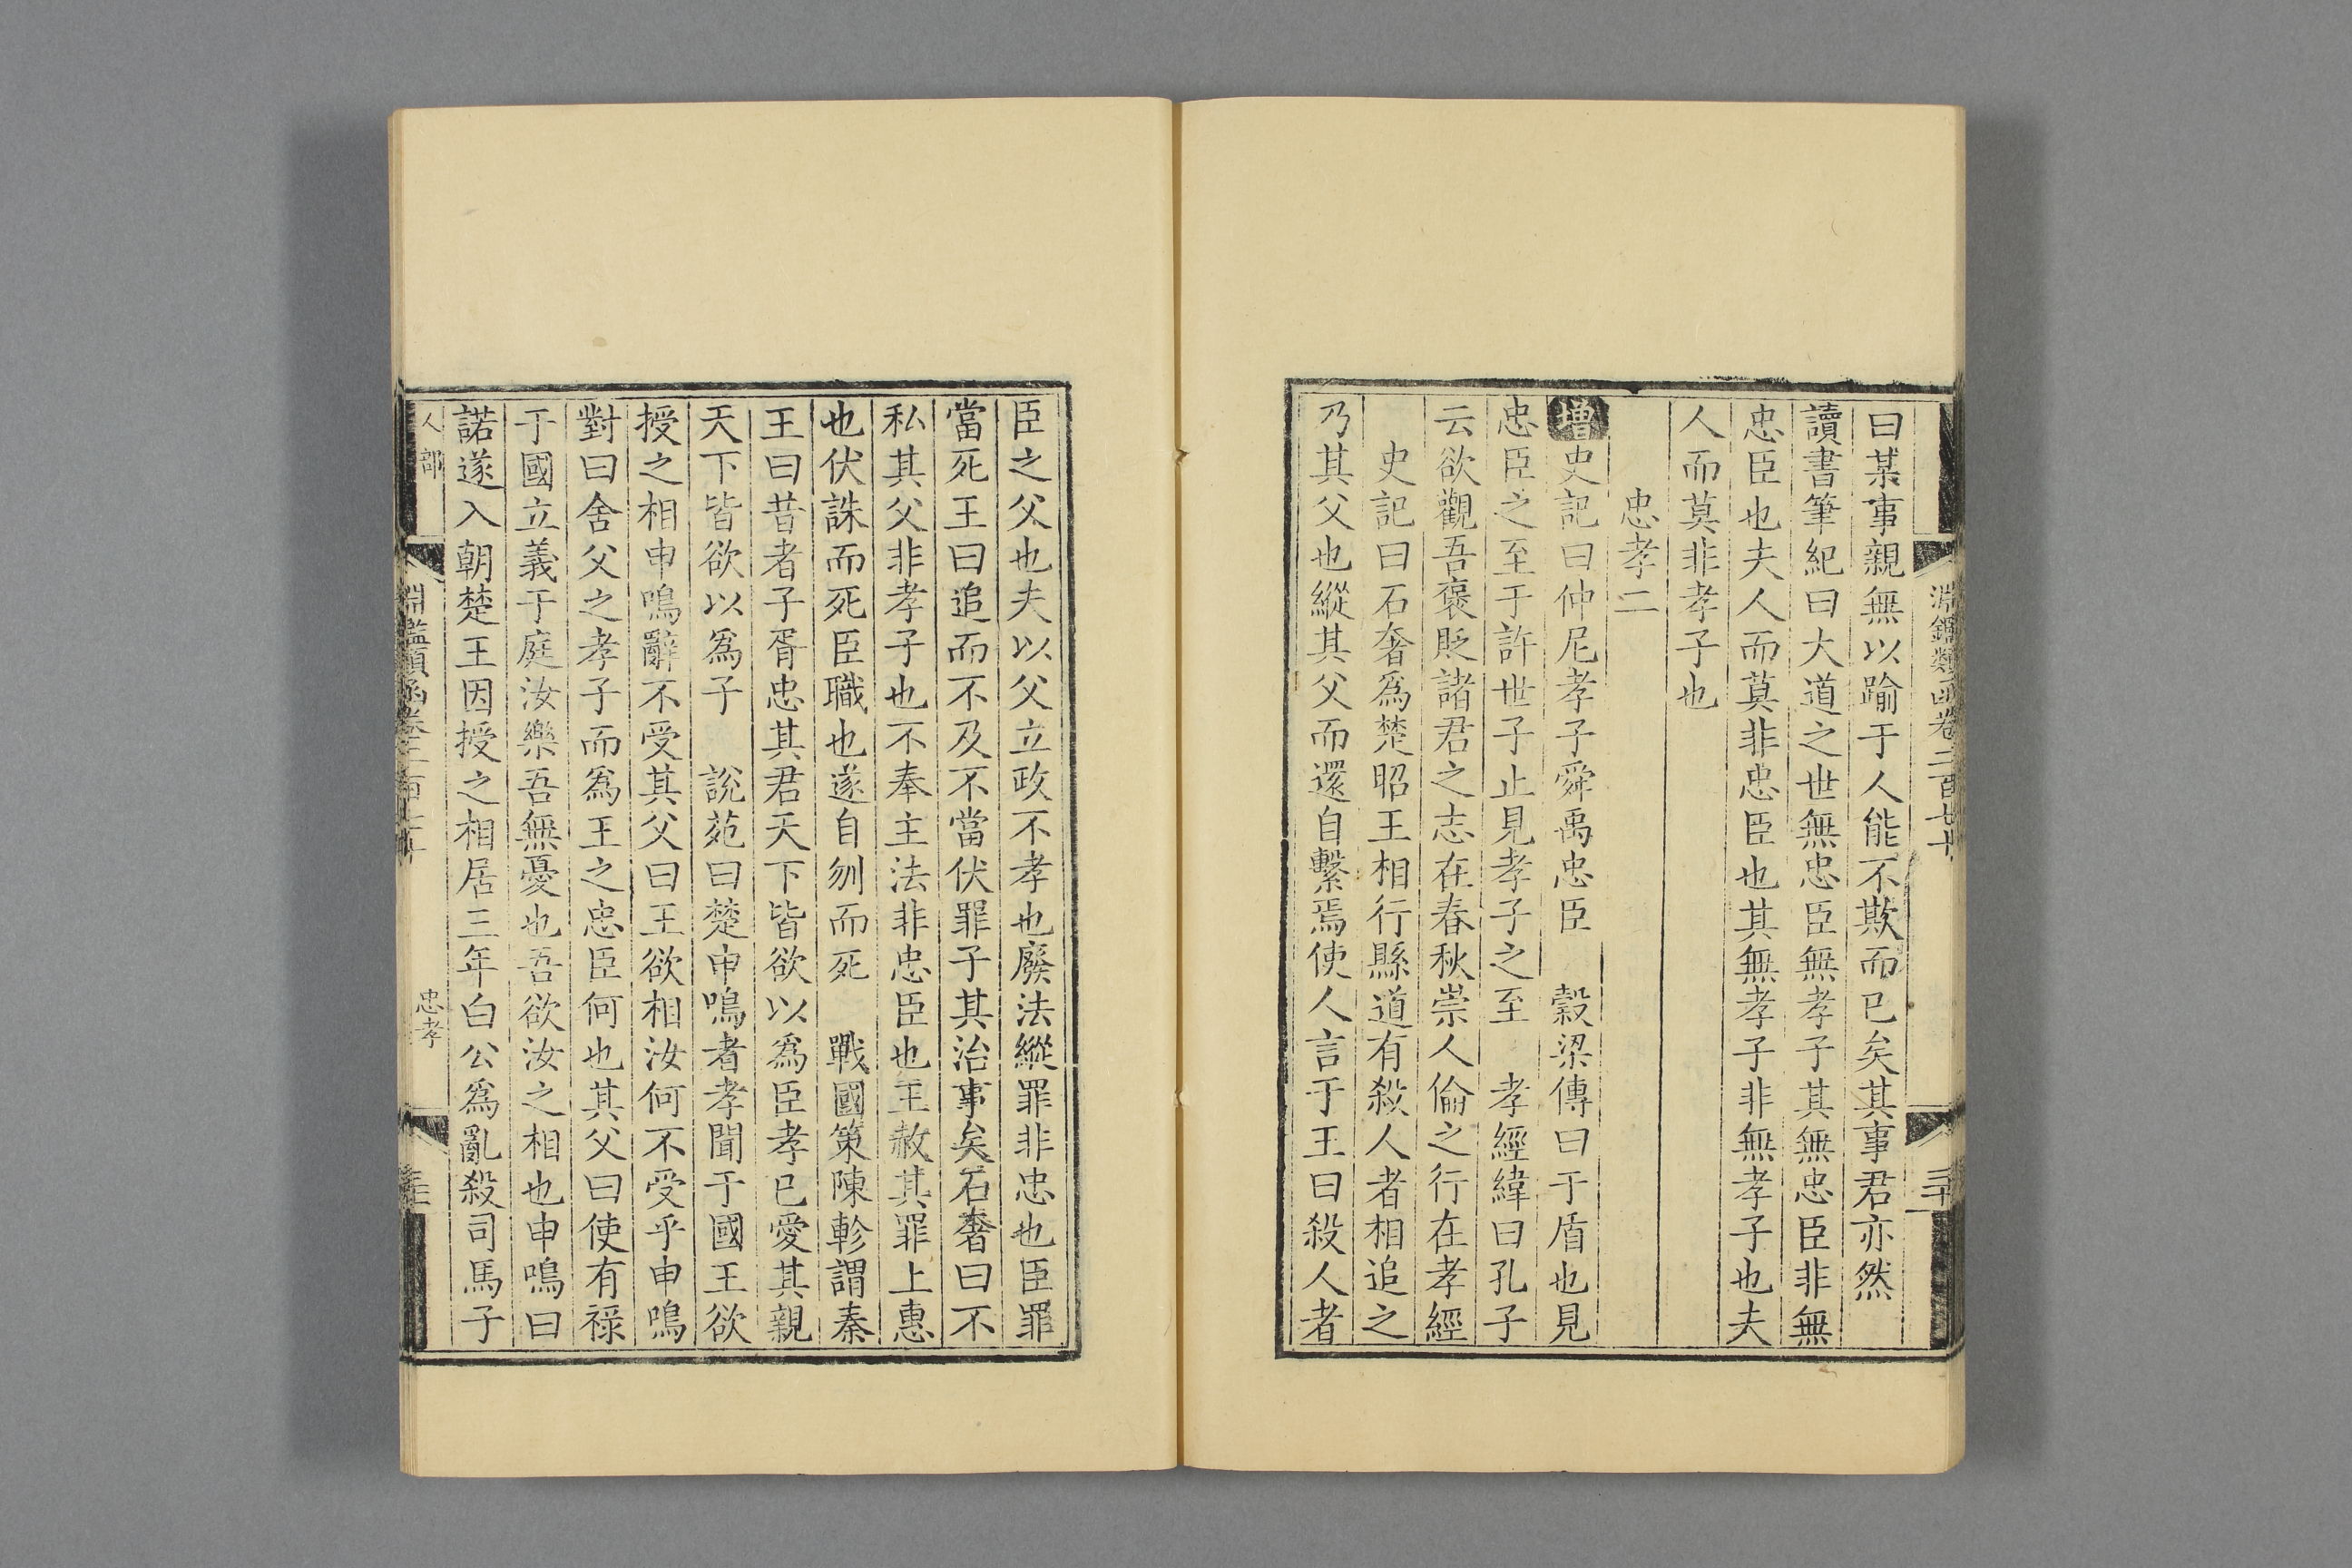 淵鑑類函卷二百七十
曰某事親無以踰于人能不欺而已矣其事君亦然
讀書筆紀曰大道之世無忠臣無孝子其無忠臣非無
忠臣也夫人而莫非忠臣也其無孝子非無孝子也夫
人而莫非孝子也
忠孝二
增史記曰仲尼孝子舜禹忠臣 穀梁傳曰于盾也見
忠臣之至于許世子止見孝子之至 孝經緯曰孔子
云欲觀吾褒貶諸君之志在春秋崇人倫之行在孝經
史記曰石奢爲楚昭王相行縣道有殺人者相追之
乃其父也縱其父而還自繫焉使人言于王曰殺人者
臣之父也夫以父立政不孝也廢法縱罪非忠也臣罪
當死王曰追而不及不當伏罪子其治事矣石奢曰不
私其父非孝子也不奉主法非忠臣也王赦其罪上惠
也伏誅而死臣職也遂自刎而死 戰國策陳軫謂秦
王曰昔者子胥忠其君天下皆欲以爲臣孝已愛其親
天下皆欲以爲子 說苑曰楚申鳴者孝聞于國王欲
授之相申鳴辭不受其父曰王欲相汝何不受乎申鳴
對曰舍父之孝子而爲王之忠臣何也其父曰使有祿
于國立義于庭汝樂吾無憂也吾欲汝之相也申鳴曰
諾遂入朝楚王因授之相居三年白公爲亂殺司馬子
人部 忠孝